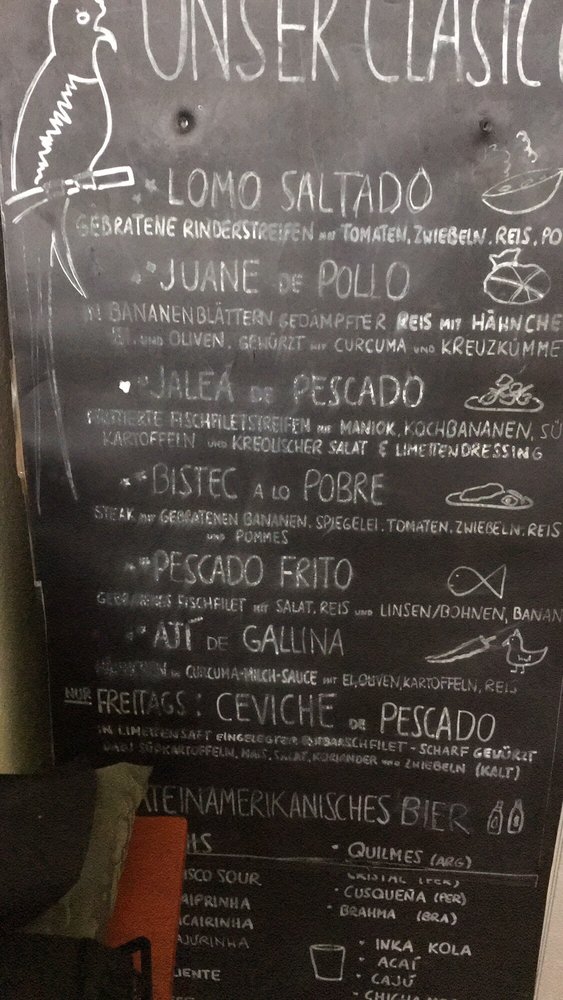 UNSER CLASIC
LOMO SALTADO
GEBRATENE RINDERSTREIFEN MIT TOMATEN, ZWIEBELN, REIS, PO
JUANE DE POLLO
IN BANANENBLÄTTERN GEDÄMPFTER REIS MIT HÄHNCHE
EI UND OLIVEN, GEWÜRZT MIT CURCUMA UND KREUZKÜMME
JALEA DE PESCADO
FRITTIERTE FISCHFILETSTREIFEN MIT MANIOK, KOCHBANANEN, SÜ
KARTOFFELN UND KREOLISCHER SALAT & LIMETTENDRESSING
BISTEC A LO POBRE
STEAK MIT GEBRATENEN BANANEN, SPIEGELEI, TOMATEN, ZWIEBELN, REIS
UND POMMES
PESCADO FRITO
GEBRATENES FISCHFILET MIT SALAT, REIS UND LINSEN/BOHNEN, BANAN
AJÍ DE GALLINA
IN CURCUMA-MILCH-SAUCE MIT EI, OLIVEN, KARTOFFELN, REIS
NUR FREITAGS: CEVICHE DE PESCADO
IN LIMETTENSAFT EINGELEGTER FILET - SCHARF GEWÜRZT
DAZU SÜSSKARTOFFELN, MAIS, SALAT, KORIANDER UND ZWIEBELN (KALT)
ATEINAMERIKANISCHES BIER
ILS
QUILMES (ARG)
CRISTAL (PER)
ISCO SOUR
CUSQUEÑA (PER)
AIPIRINHA
BRAHMA (BRA)
CAIRINHA
AJURINHA
INKA KOLA
ACAÍ
IENTE
CAJÚ
CHICHA